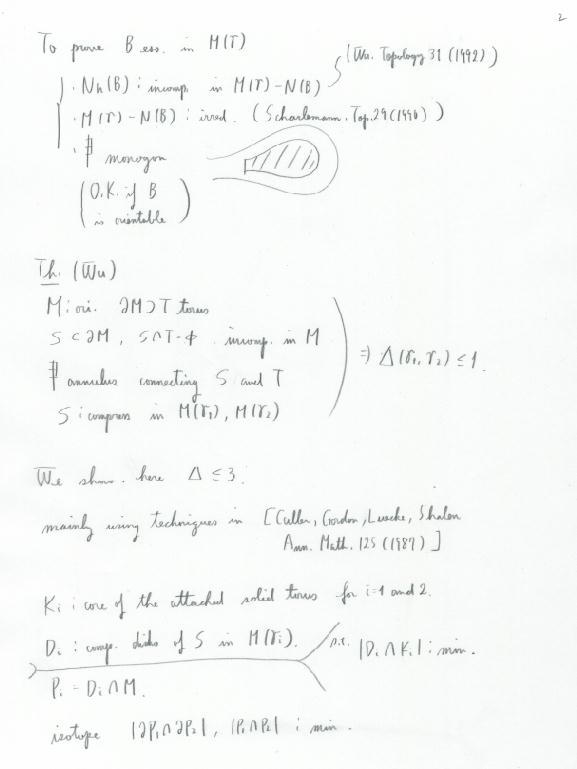 2
To prove B ess. in M(γ)
· N_h(B) : incomp. in M(γ) - N(B) (Wu. Topology 31 (1992))
· M(γ) - N(B) : irred. (Scharlemann. Top. 29 (1990))
· ∄ monogon
(O.K. if B
is orientable)
Th. (Wu)
M : ori. ∂M ⊃ T torus
S ⊂ ∂M, S∩T=φ incomp. in M
∄ annulus connecting S and T
S : compress in M(γ₁), M(γ₂)
⇒ Δ(γ₁, γ₂) ≤ 1.
We show here Δ ≤ 3.
mainly using techniques in [Culler, Gordon, Luecke, Shalen
Ann. Math. 125 (1987)]
K_i : core of the attached solid torus for i=1 and 2.
D_i : comp. disks of S in M(γ_i). s.t. |D_i ∩ K_i| : min.
P_i = D_i ∩ M.
isotope |∂P₁ ∩ ∂P₂|, |P₁ ∩ P₂| : min.